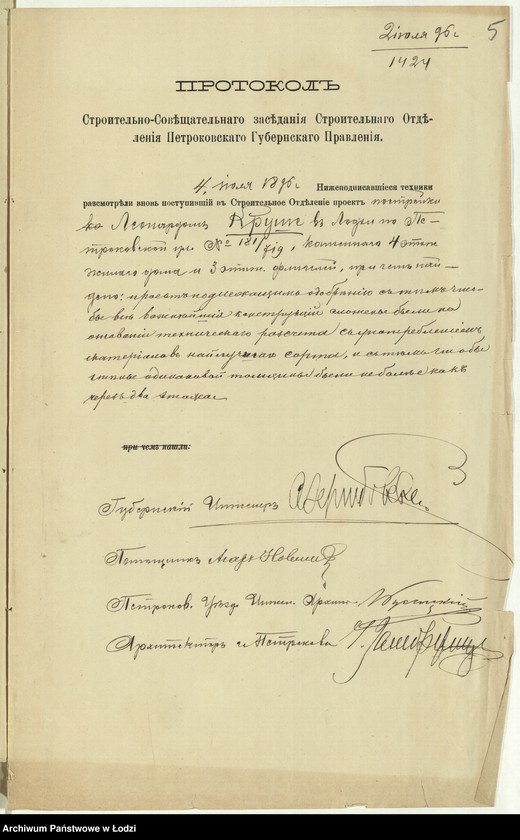 2 іюля 96 г
5
1424
ПРОТОКОЛЪ
Строительно-Совѣщательнаго засѣданія Строительнаго Отдѣ-
ленія Петроковскаго Губернскаго Правленія.
4 іюля 1896 г. Нижеподписавшіеся техники
разсмотрѣли вновь поступившій въ Строительное Отдѣленіе проектъ постройки
Леопардомъ въ Лодзи по Пе-
троковской ул. № каменнаго 4 этаж
жилаго дома и 3 этаж. флигелей, при чемъ най-
дено: проектъ подлежащимъ одобренію съ тѣмъ что-
бы всѣ важнѣйшія конструкціи сложные были на
основаніи техническаго разсчета съ употребленіемъ
матеріаловъ наилучшаго сорта, и стѣны
одинаковой толщины были не болѣе какъ
черезъ два этажа.
при чемъ нашли:
Губернскій Инженеръ
Помощникъ
Петроков. Уѣзд. Инжен. Архит.
Архитекторъ г. Петрокова
Archiwum Państwowe w Łodzi